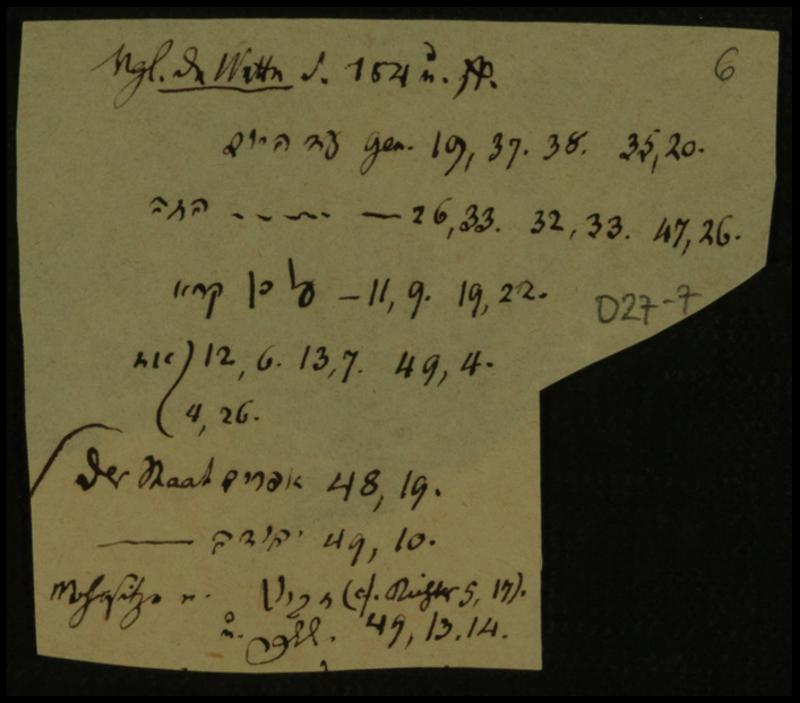 Vgl. de Wette S. 154 u. ff. 6
עד היום Gen. 19, 37. 38. 35, 20.
הזה — 26, 33. 32, 33. 47, 26.
על כן קרא — 11, 9. 19, 22.
D27-7
אז) 12, 6. 13, 7. 49, 4.
(4, 26.
Der Staat אפרים 48, 19.
— יהודה 49, 10.
Wohnsitze v. (cf. Richter 5, 17).
u. 49, 13. 14.